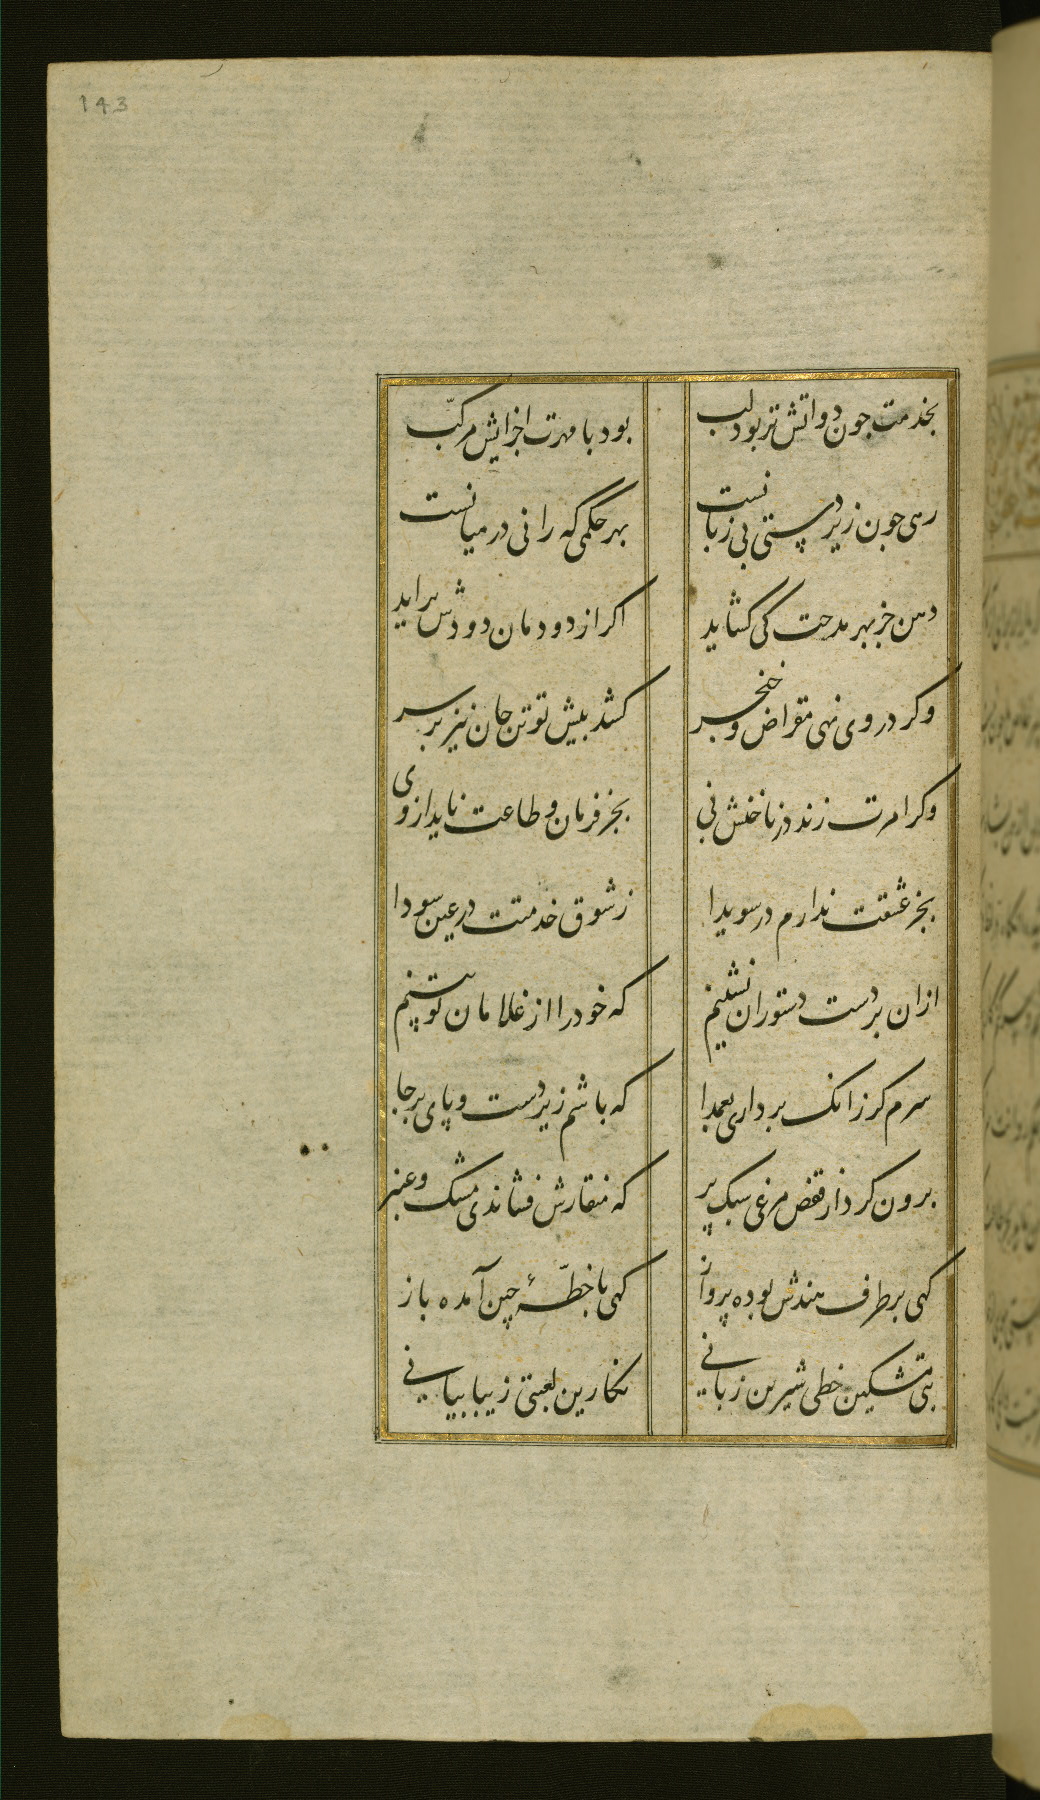 143
بخدمت جون دواتش تر بود لب
بود با مهرت اجزایش مرکّب
رهی جون زیر دستی بی زبانست
بهر حکمی که رانی در میانست
دهن جز بهر مدحت کی کشاید
اکر از دودمان دودش براید
وکر در وی نهی مقراض و خنجر
کشد پیش تو تن جان نیز بر سر
وکر امرت زند در ناخنش نی
بجز فرمان و طاعت ناید از وی
بجز عشقت ندارم در سویدا
ز شوق خدمتت در عین سودا
ازان بر دست دستوران نشینم
که خود را از غلامان تو بینم
سرم کر زانک برداری بعمدا
که باشم زیر دست و پای برجا
برون کرد از قفص مرغی سبک پر
که منقارش فشاندی مشک و عنبر
کهی بر طرف هندش بوده پرواز
کهی با خطّهٔ چین آمده باز
بتی مشکین خطی شیرین زبانی
نکارین لعبتی زیبا بیانی